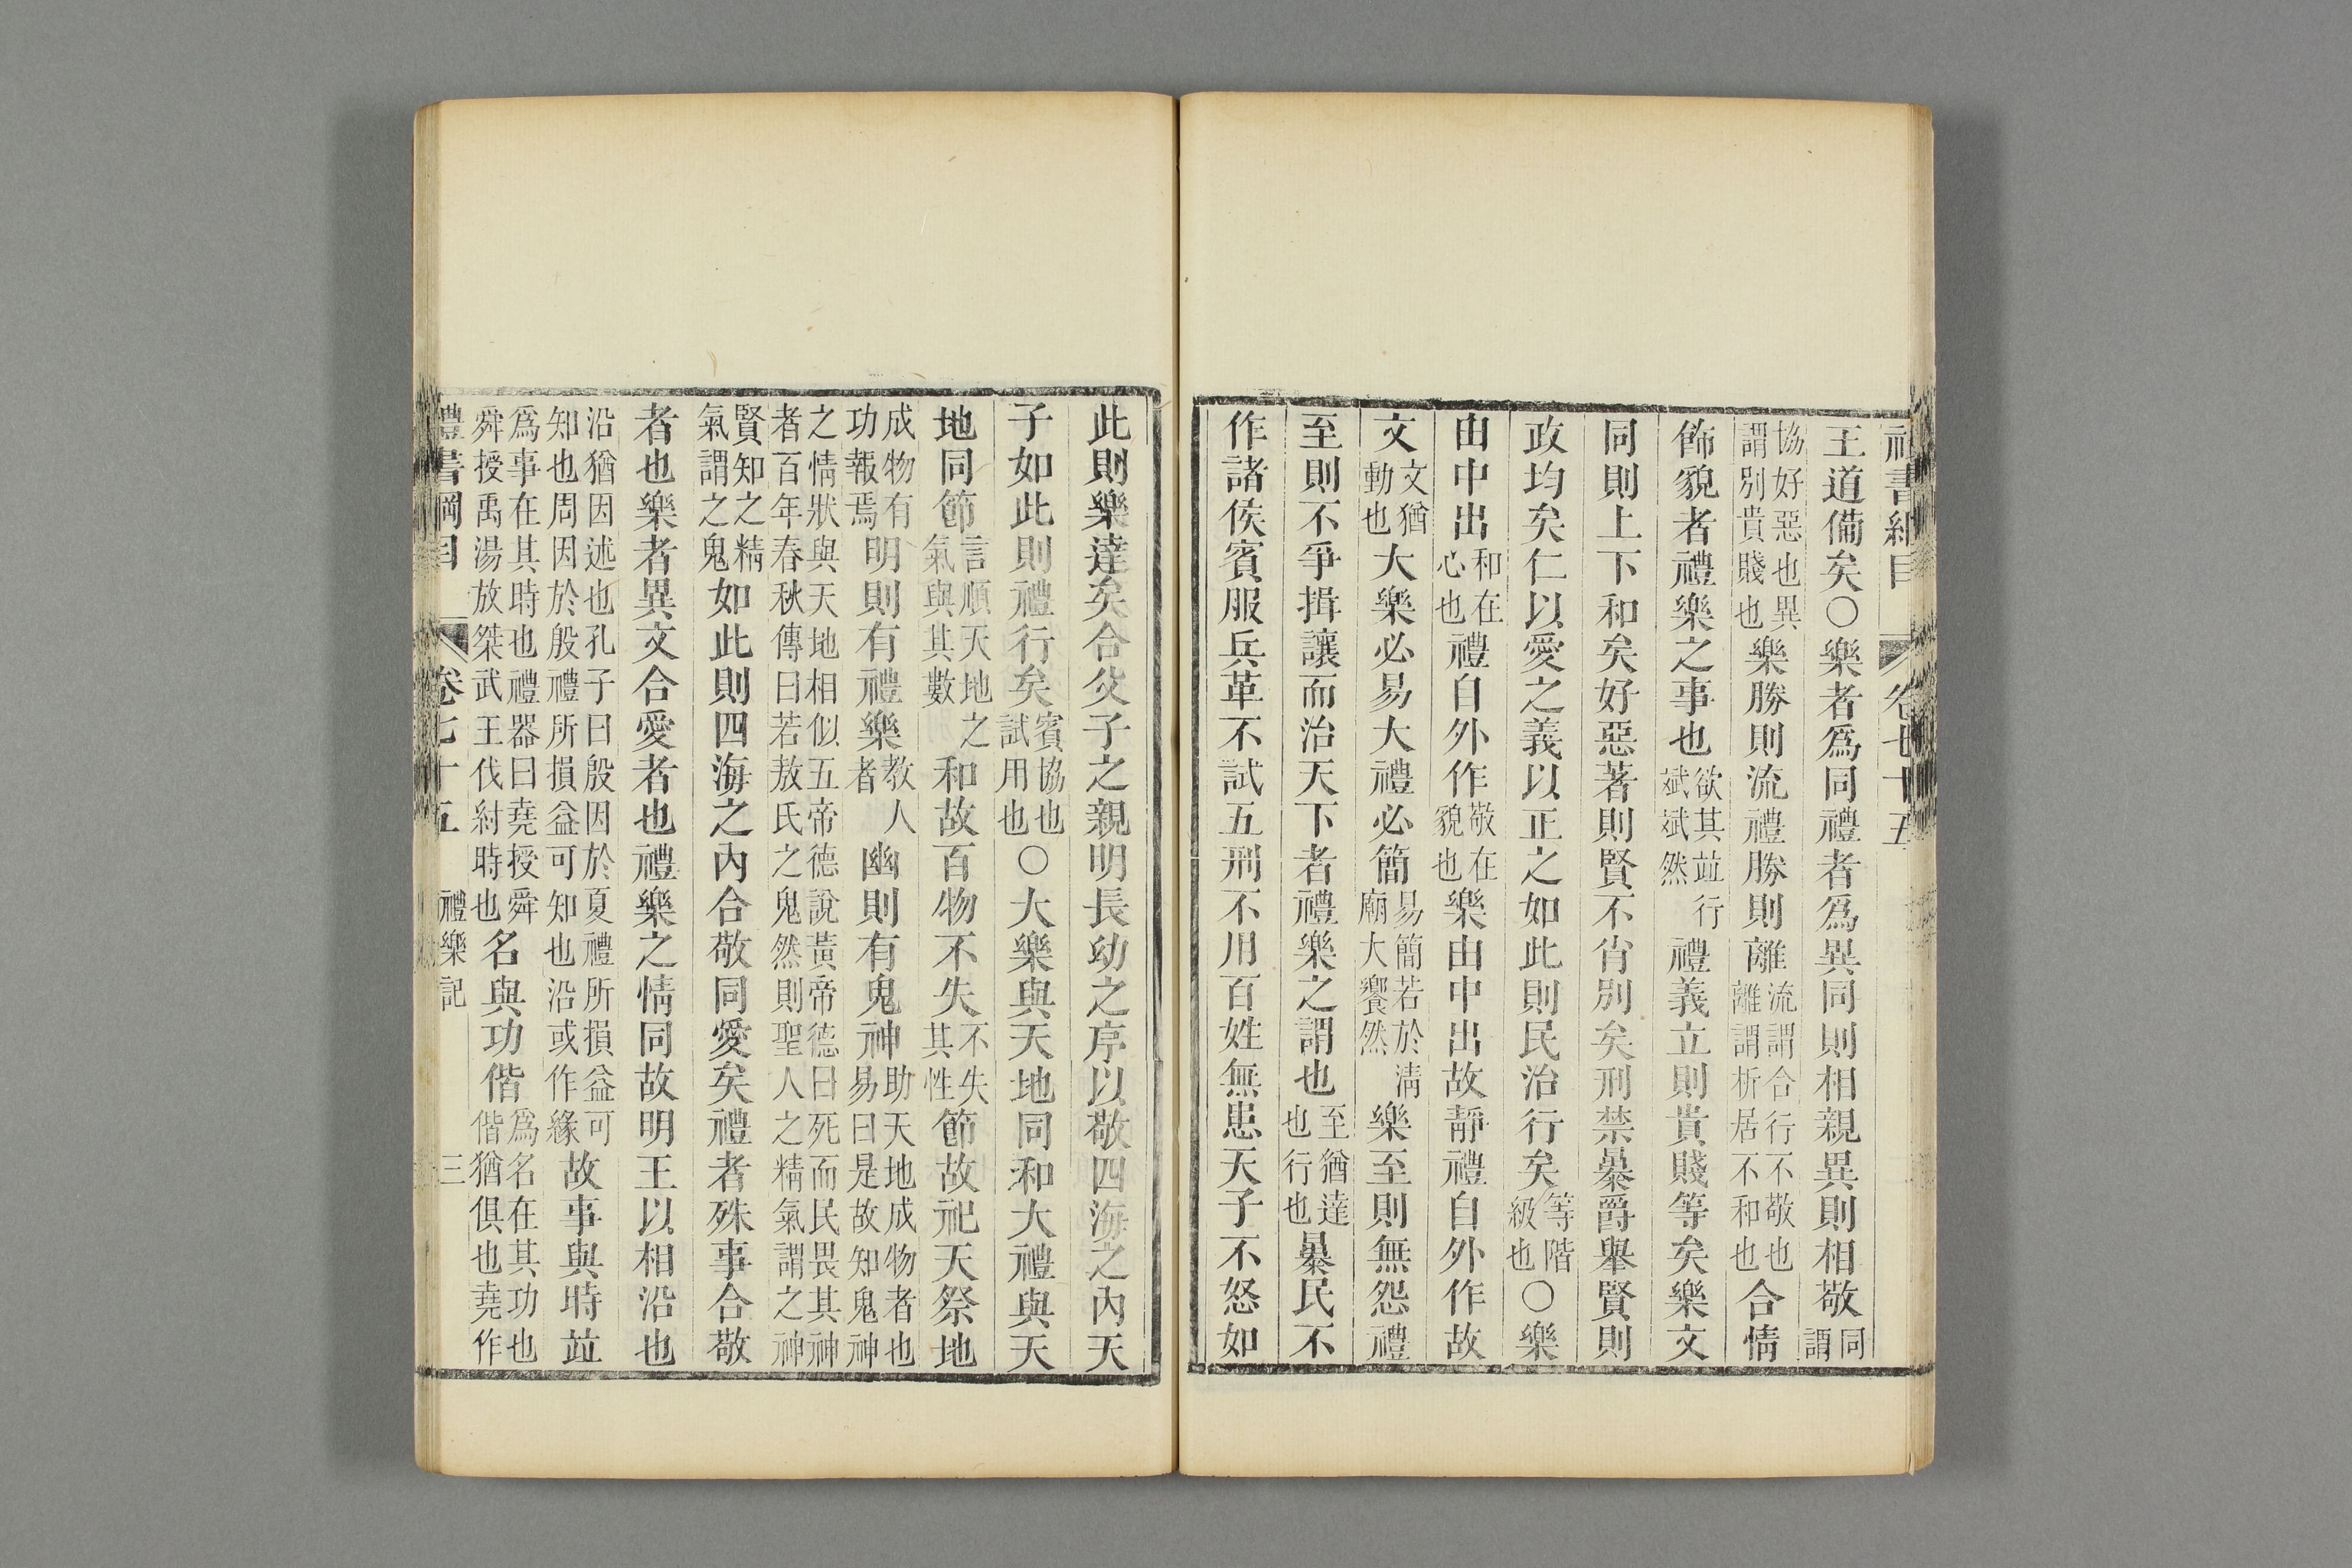 禮書綱目 卷七十五
王道備矣○樂者爲同禮者爲異同則相親異則相敬同謂
協好惡也異謂別貴賤也樂勝則流禮勝則離流謂合行不敬也離謂析居不和也合情
飾貌者禮樂之事也欲其竝行斌斌然禮義立則貴賤等矣樂文
同則上下和矣好惡著則賢不肖別矣刑禁暴爵舉賢則
政均矣仁以愛之義以正之如此則民治行矣等階級也○樂
由中出和在心也禮自外作敬在貌也樂由中出故靜禮自外作故
文文猶動也大樂必易大禮必簡易簡若於淸廟大饗然樂至則無怨禮
至則不爭揖讓而治天下者禮樂之謂也至猶達也行也暴民不
作諸侯賓服兵革不試五刑不用百姓無患天子不怒如
此則樂達矣合父子之親明長幼之序以敬四海之內天
子如此則禮行矣賓協也試用也○大樂與天地同和大禮與天
地同節言順天地之氣與其數和故百物不失不失其性節故祀天祭地
成物有功報焉明則有禮樂教人者幽則有鬼神助天地成物者也易曰是故知鬼神
之情狀與天地相似五帝德說黃帝德曰死而民畏其神者百年春秋傳曰若敖氏之鬼然則聖人之精氣謂之神
賢知之精氣謂之鬼如此則四海之內合敬同愛矣禮者殊事合敬
者也樂者異文合愛者也禮樂之情同故明王以相沿也
沿猶因述也孔子曰殷因於夏禮所損益可知也周因於殷禮所損益可知也沿或作緣故事與時竝
爲事在其時也禮器曰堯授舜舜授禹湯放桀武王伐紂時也名與功偕爲名在其功也偕猶俱也堯作
禮書綱目 卷七十五 禮樂記 三